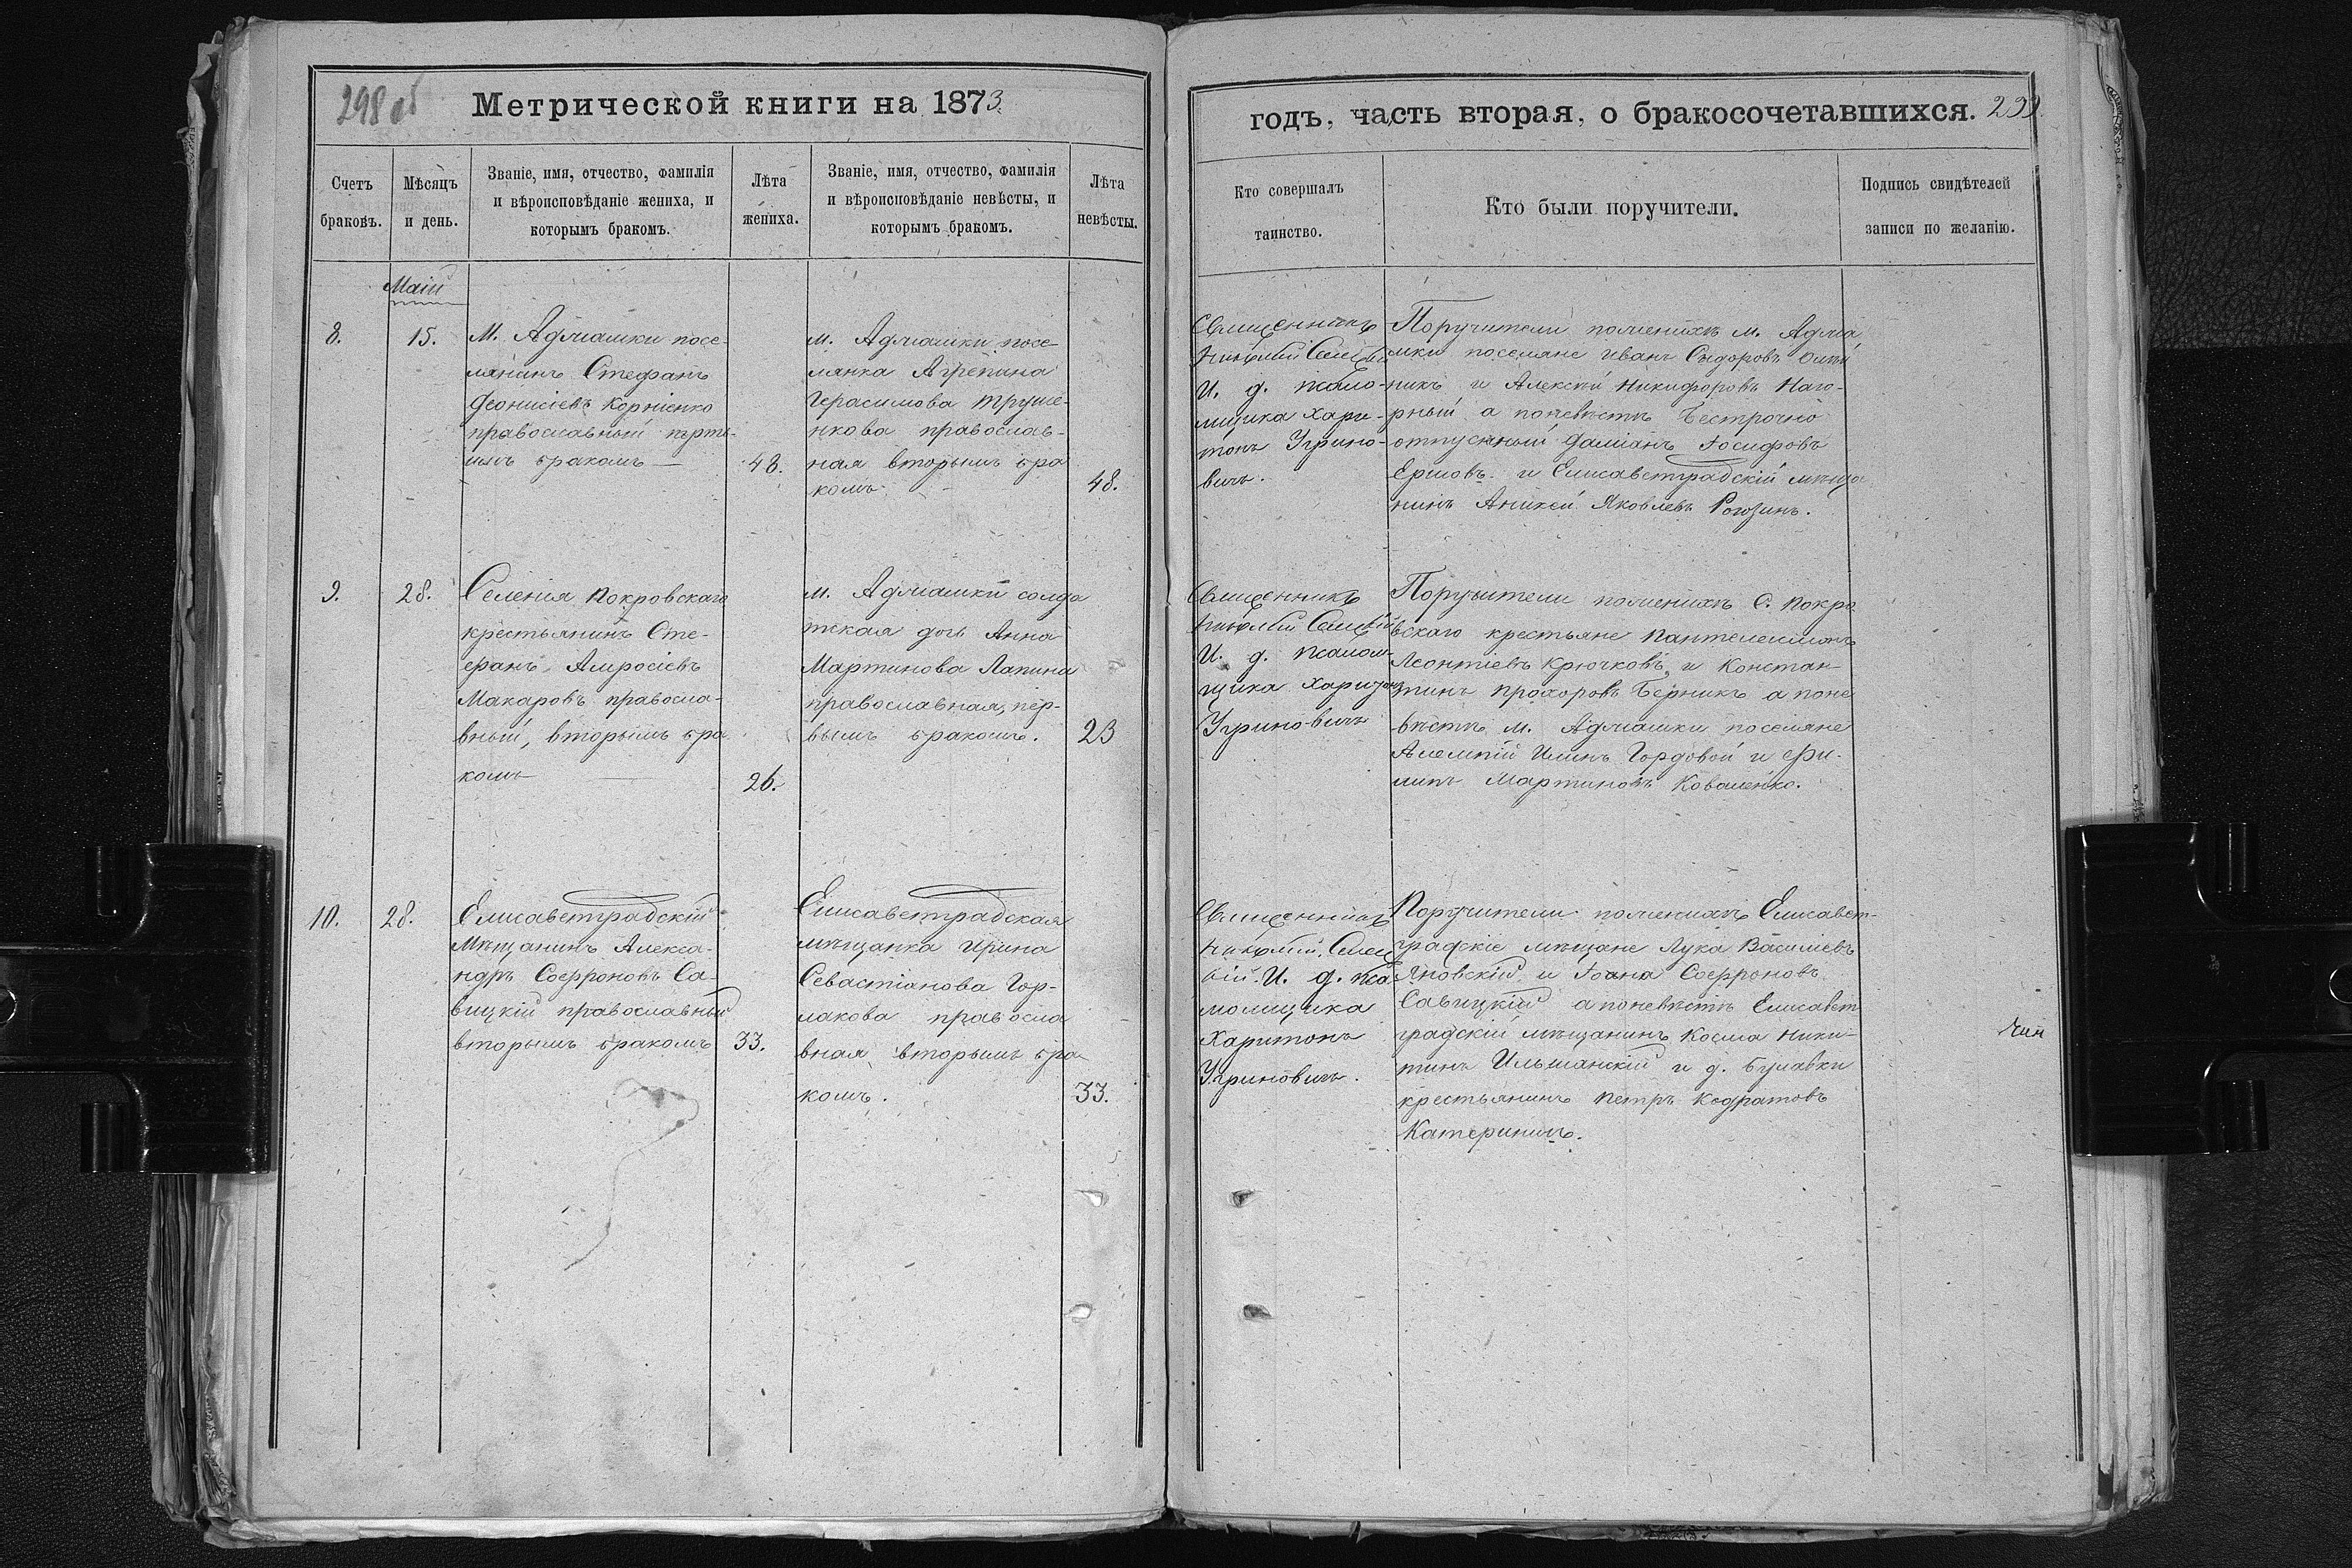 298 об
Метрической книги на 1873
Счетъ
браковъ.
Мѣсяцъ
и день.
Званіе, имя, отчество, фамилія
и вѣроисповѣданіе жениха, и
которымъ бракомъ.
Лѣта
жениха.
Званіе, имя, отчество, фамилія
и вѣроисповѣданіе невѣсты, и
которымъ бракомъ.
Лѣта
невѣсты.
годъ, часть вторая, о бракосочетавшихся. 299
Кто совершалъ
таинство.
Кто были поручители.
Подпись свидѣтелей
записи по желанію.
Маій
8.
15.
М. Аджамки посе-
лянинъ Стефанъ
Діонисіевъ Корніенко
православный
бракомъ
48.
м. Аджамки посе-
лянка Агрепина
Герасимова Труше-
нкова православ-
ная вторымъ бра
комъ
48.
Священникъ
И. д. псало-
мщика Хари-
тонъ Угрино-
вичъ.
Поручители пожениху м. Аджа
мки поселяне Иванъ Сидоровъ
никъ и Алексѣй Никифоровъ Наго-
рный а поневѣстѣ безсрочно
отпускный Даміанъ Іосифовъ
Ершовъ и Елисаветградскій мѣща
нинъ Аникей Яковлевъ Рогозинъ.
9.
28.
Селенія Покровскаго
крестьянинъ Сте-
фанъ Амросіевъ
Макаровъ правосла-
вный, вторымъ бра
комъ
26.
м. Аджамки солда
тская дочь Анна
Мартинова Лапина
православная, пер-
вымъ бракомъ.
23
Священникъ
И. д. псалом-
щика Харитонъ
Угриновичъ
Поручители пожениху С. Покро
вскаго крестьяне Пантелеимонъ
Леонтіевъ Крючковъ, и Констан-
тинъ Прохоровъ Берникъ а поне
вѣстѣ м. Аджамки поселяне
Алемпій Илинъ Гордовой и Фи-
липъ Мартиновъ Коваленко.
10.
28.
Елисаветградскій
Мѣщанинъ Алекса-
ндръ Софроновъ Са-
вицкій православный
вторымъ бракомъ
33.
Елисаветградская
мѣщанка Ирина
Севастіанова Гор-
лакова правосла
вная вторымъ бра
комъ.
33.
Священникъ
И. д. пса-
ломщика
Харитонъ
Угриновичъ.
Поручители пожениху Елисавет-
градскіе мѣщане Лука Василіевъ
Яновскій и Іоана Софроновъ
Савицкій а поневѣстѣ Елисавет
градскій мѣщанинъ Косма Ники-
тинъ Ильшанскій и д. Булавки
крестьянинъ Петръ Кодратовъ
Катериничъ.